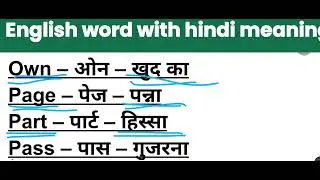 English word with hindi meaning
Own – ओन – खुद का
Page – पेज – पन्ना
Part – पार्ट – हिस्सा
Pass – पास – गुजरना